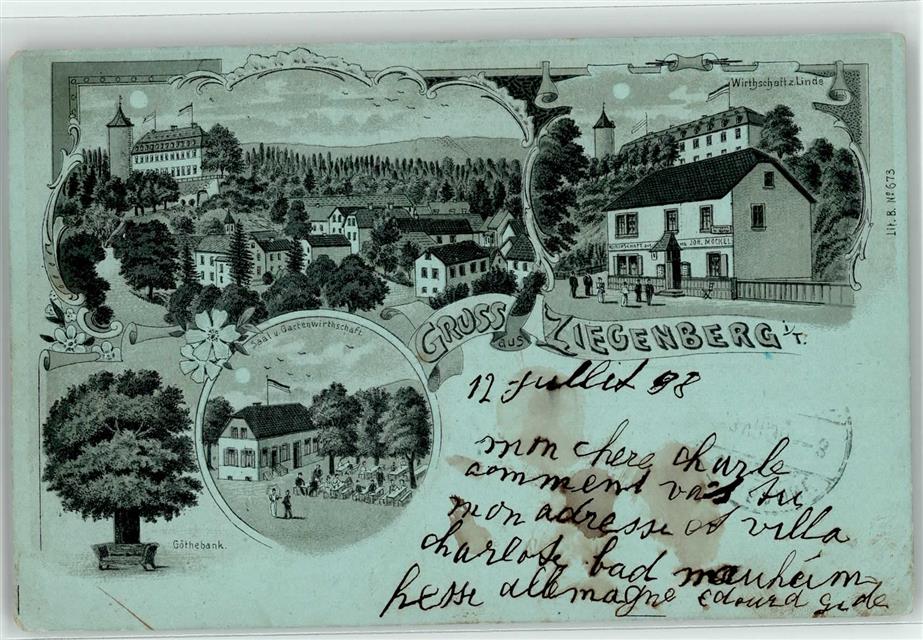 Wirthschaft z. Linde
Lit. B. № 673
WIRTHSCHAFT zur
JOH. MÖCKEL
Saal u. Gartenwirthschaft.
GRUSS aus ZIEGENBERG i/T.
Göthebank.
12 Jullit 98
mon chere charle
comment vas tu
mon adresse et villa
charlote bad nauheim
hesse allemagne edouard